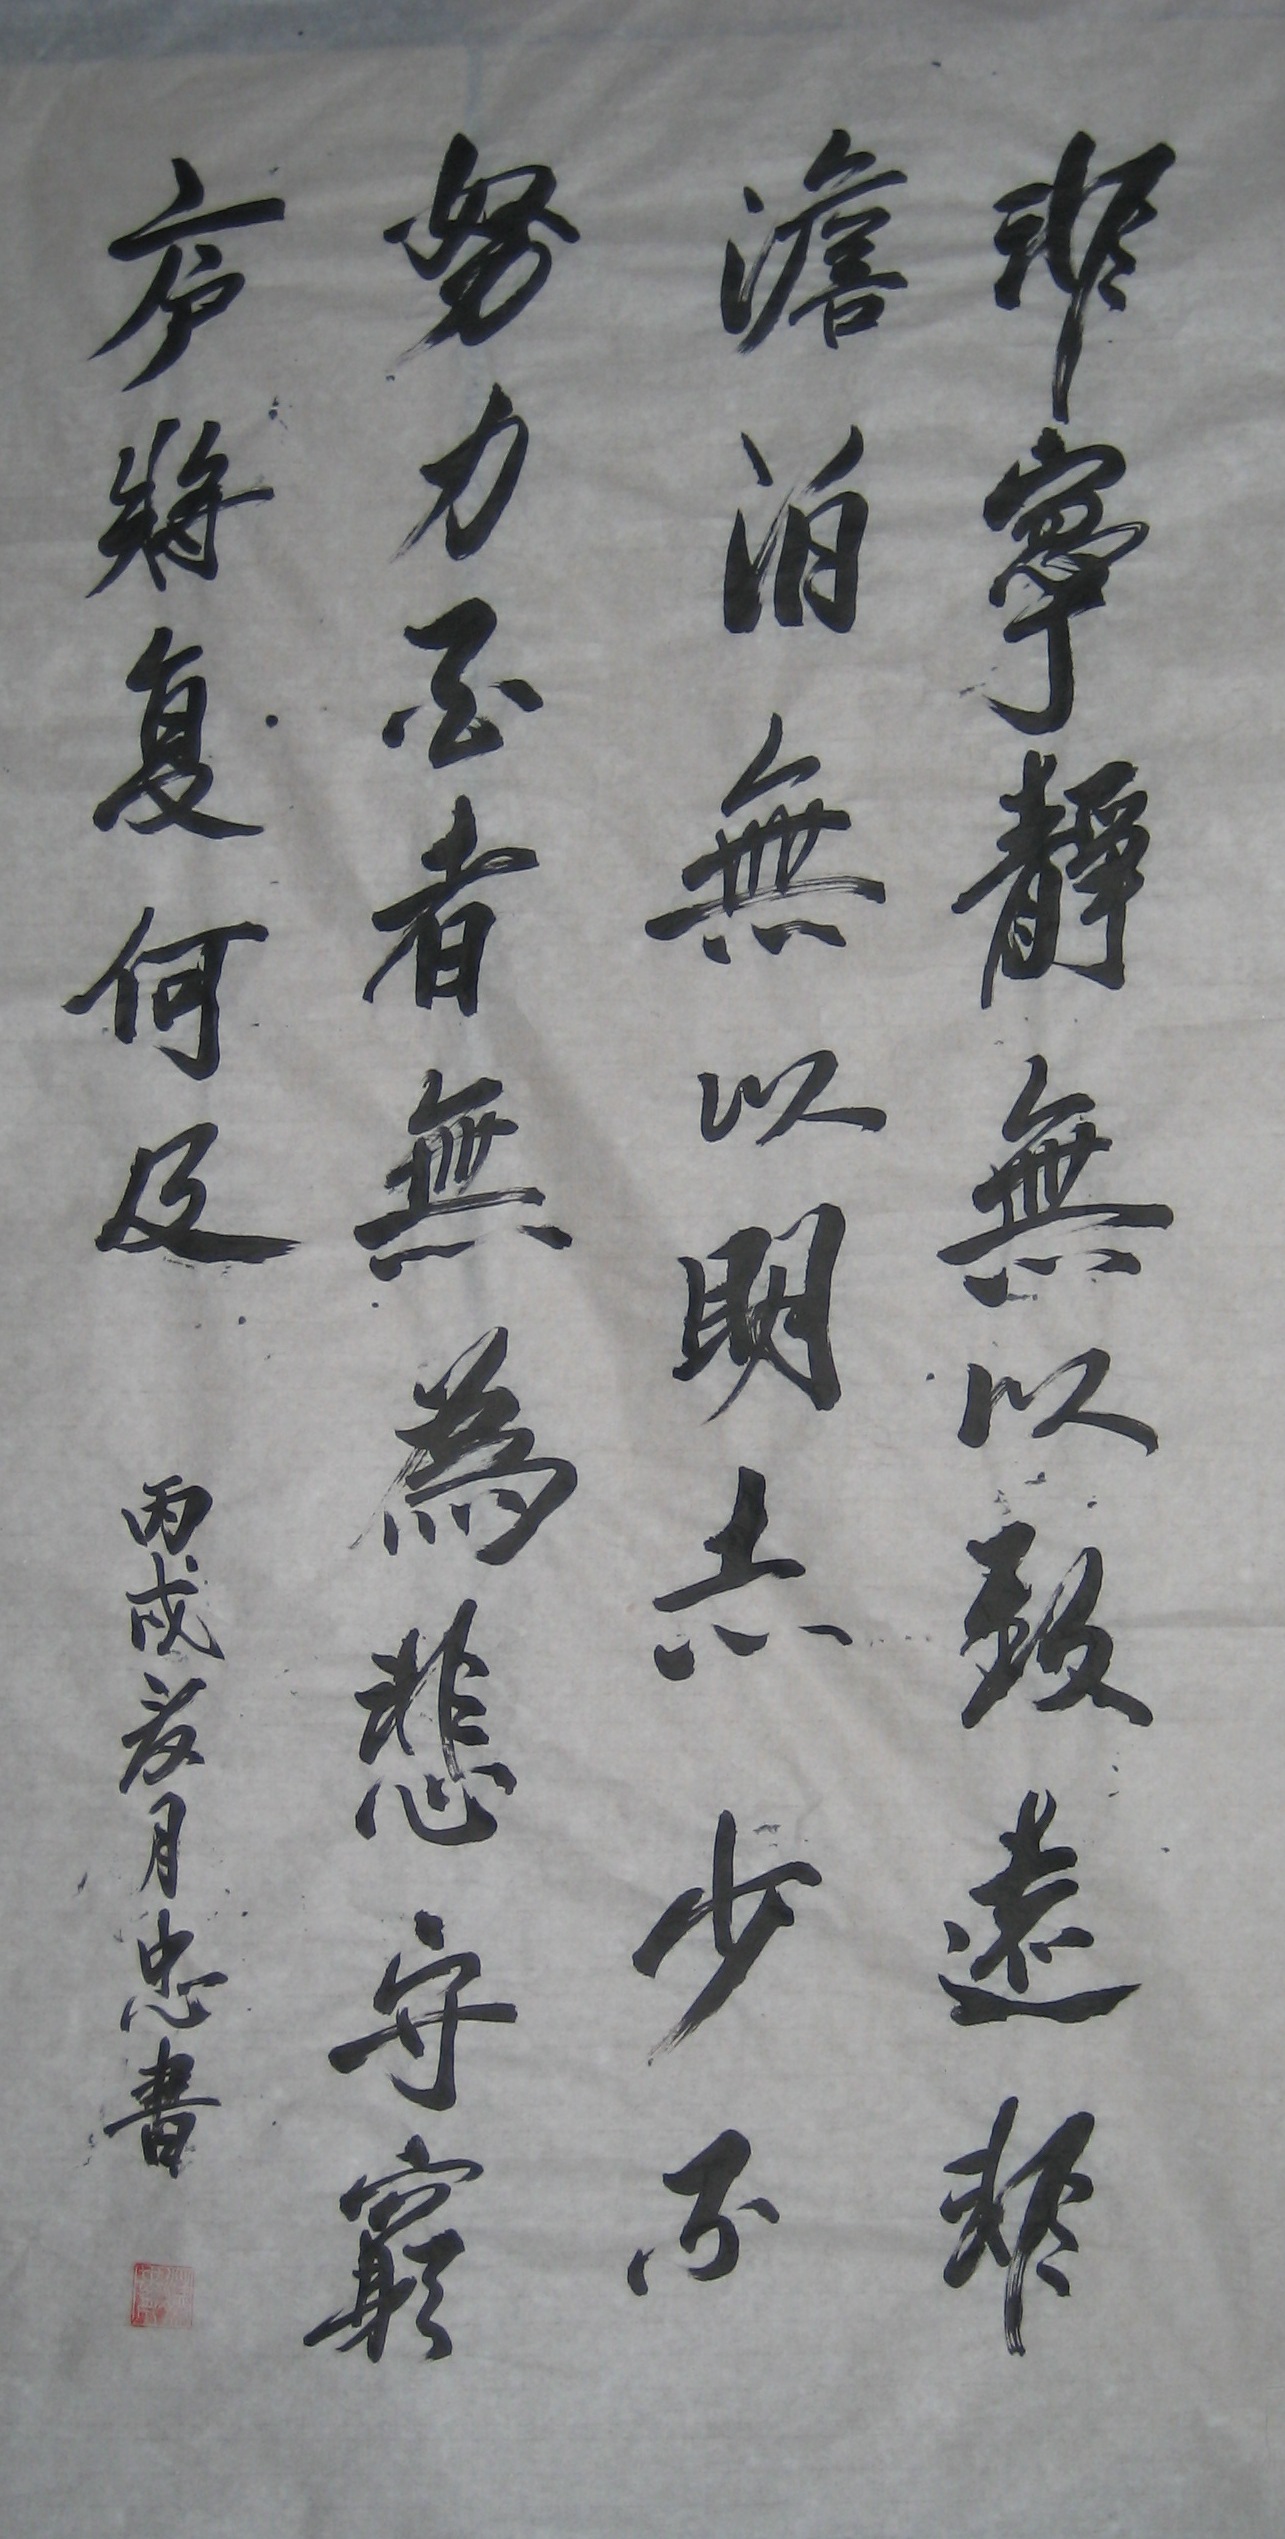 非寧靜無以致遠非
澹泊無以明志少不
努力至者無為悲守窮
庐將复何及
丙戌月忠書